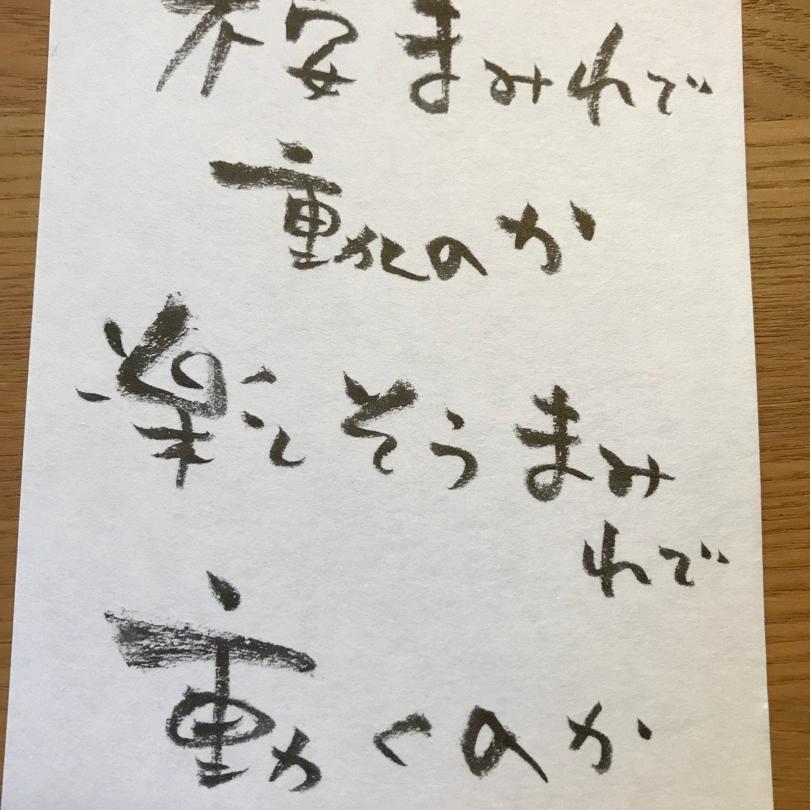 不安まみれで
動くのか
楽しそうまみ
れで
動くのか